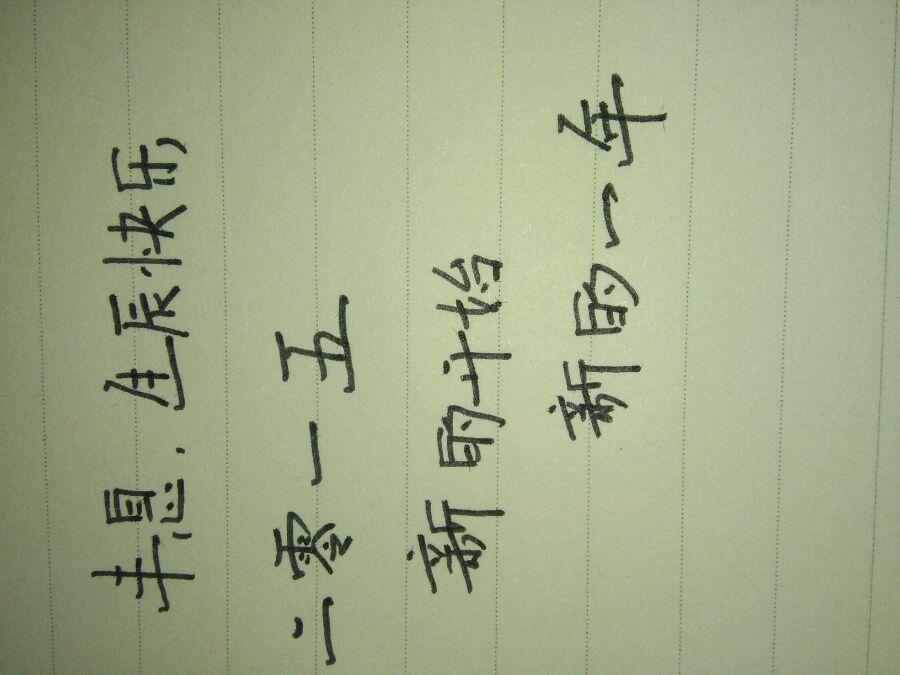 丰恩.生辰快乐
二零一五
新的开始
新的一年